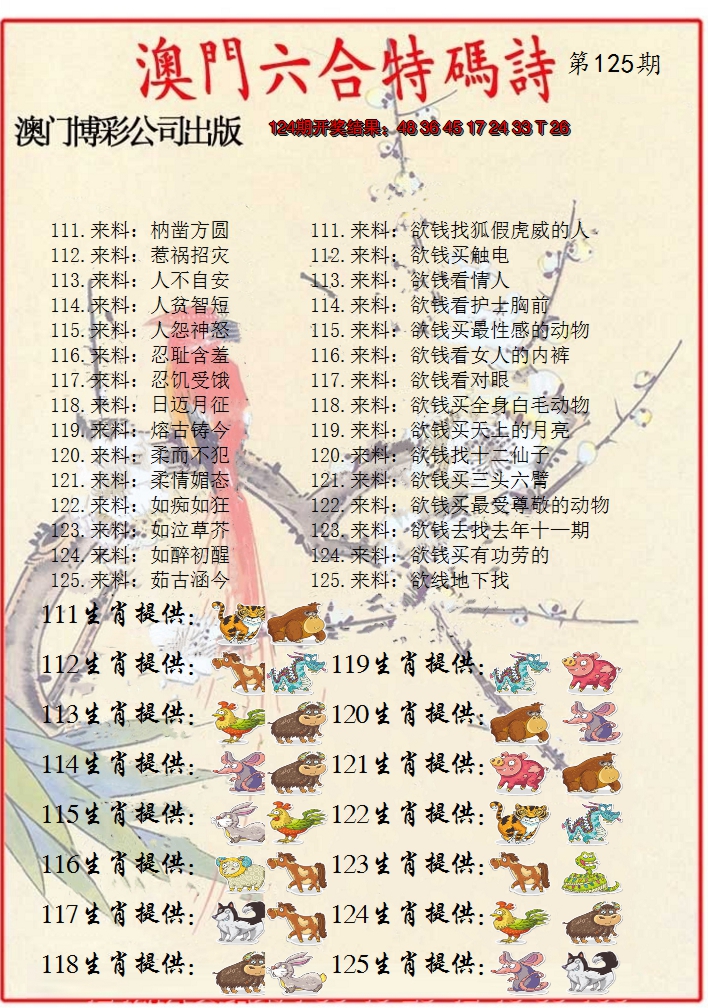 澳門六合特碼詩 第125期
澳门博彩公司出版 124期开奖结果：48 36 45 17 24 33 T 26
111.来料：枘凿方圆 111.来料：欲钱找狐假虎威的人
112.来料：惹祸招灾 112.来料：欲钱买触电
113.来料：人不自安 113.来料：欲钱看情人
114.来料：人贫智短 114.来料：欲钱看护士胸前
115.来料：人怨神怒 115.来料：欲钱买最性感的动物
116.来料：忍耻含羞 116.来料：欲钱看女人的内裤
117.来料：忍饥受饿 117.来料：欲钱看对眼
118.来料：日迈月征 118.来料：欲钱买全身白毛动物
119.来料：熔古铸今 119.来料：欲钱买天上的月亮
120.来料：柔而不犯 120.来料：欲钱找十二仙子
121.来料：柔情媚态 121.来料：欲钱买三头六臂
122.来料：如痴如狂 122.来料：欲钱买最受尊敬的动物
123.来料：如泣草芥 123.来料：欲钱去找去年十一期
124.来料：如醉初醒 124.来料：欲钱买有功劳的
125.来料：茹古涵今 125.来料：欲线地下找
111生肖提供：
112生肖提供： 119生肖提供：
113生肖提供： 120生肖提供：
114生肖提供： 121生肖提供：
115生肖提供： 122生肖提供：
116生肖提供： 123生肖提供：
117生肖提供： 124生肖提供：
118生肖提供： 125生肖提供：